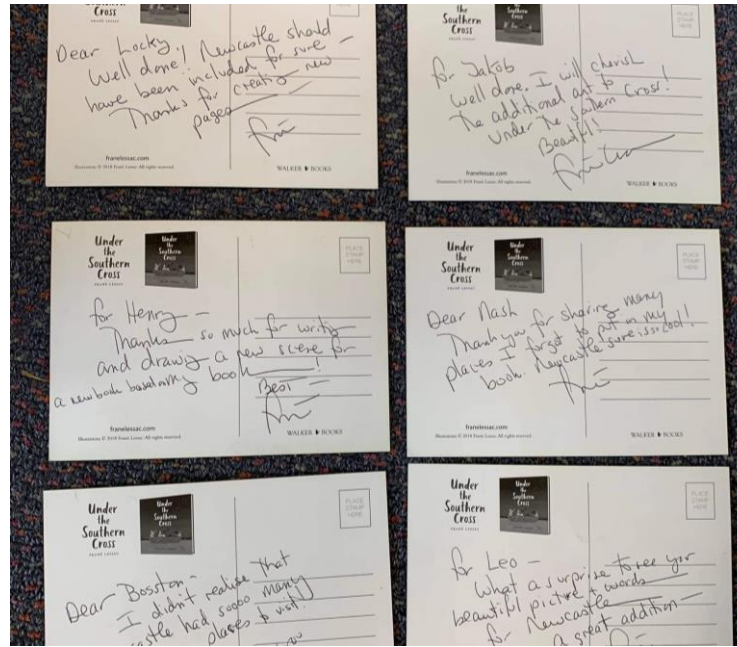 Southern
Cross
PLACE
STAMP
HERE
Dear Locky,
Well done! Newcastle should
have been included for sure —
Thanks for creating new
pages
franelessac.com
Illustrations © 2018 Frané Lessac. All rights reserved.
WALKER BOOKS
Southern
Cross
PLACE
STAMP
HERE
for Jakob
Well done. I will cherish
the additional art to
Under the Southern Cross!
Beautiful!
franelessac.com
Illustrations © 2018 Frané Lessac. All rights reserved.
WALKER BOOKS
Under
the
Southern
Cross
FRANÉ LESSAC
Under
the
Southern
Cross
PLACE
STAMP
HERE
for Henry —
Thanks so much for writing
and drawing a new scene for
a new book based on my book!
Best —
franelessac.com
Illustrations © 2018 Frané Lessac. All rights reserved.
WALKER BOOKS
Under
the
Southern
Cross
FRANÉ LESSAC
Under
the
Southern
Cross
PLACE
STAMP
HERE
Dear Nash
Thank you for sharing many
places I forgot to put in my
book. Newcastle sure is so cool!
franelessac.com
Illustrations © 2018 Frané Lessac. All rights reserved.
WALKER BOOKS
Under
the
Southern
Cross
FRANÉ LESSAC
Under
the
Southern
Cross
PLACE
STAMP
HERE
Dear Bosston —
I didn't realise that
castle had sooo many
places to visit!
Under
the
Southern
Cross
FRANÉ LESSAC
Under
the
Southern
Cross
PLACE
STAMP
HERE
for Leo —
What a surprise to see your
beautiful picture + words
for Newcastle
a great addition —